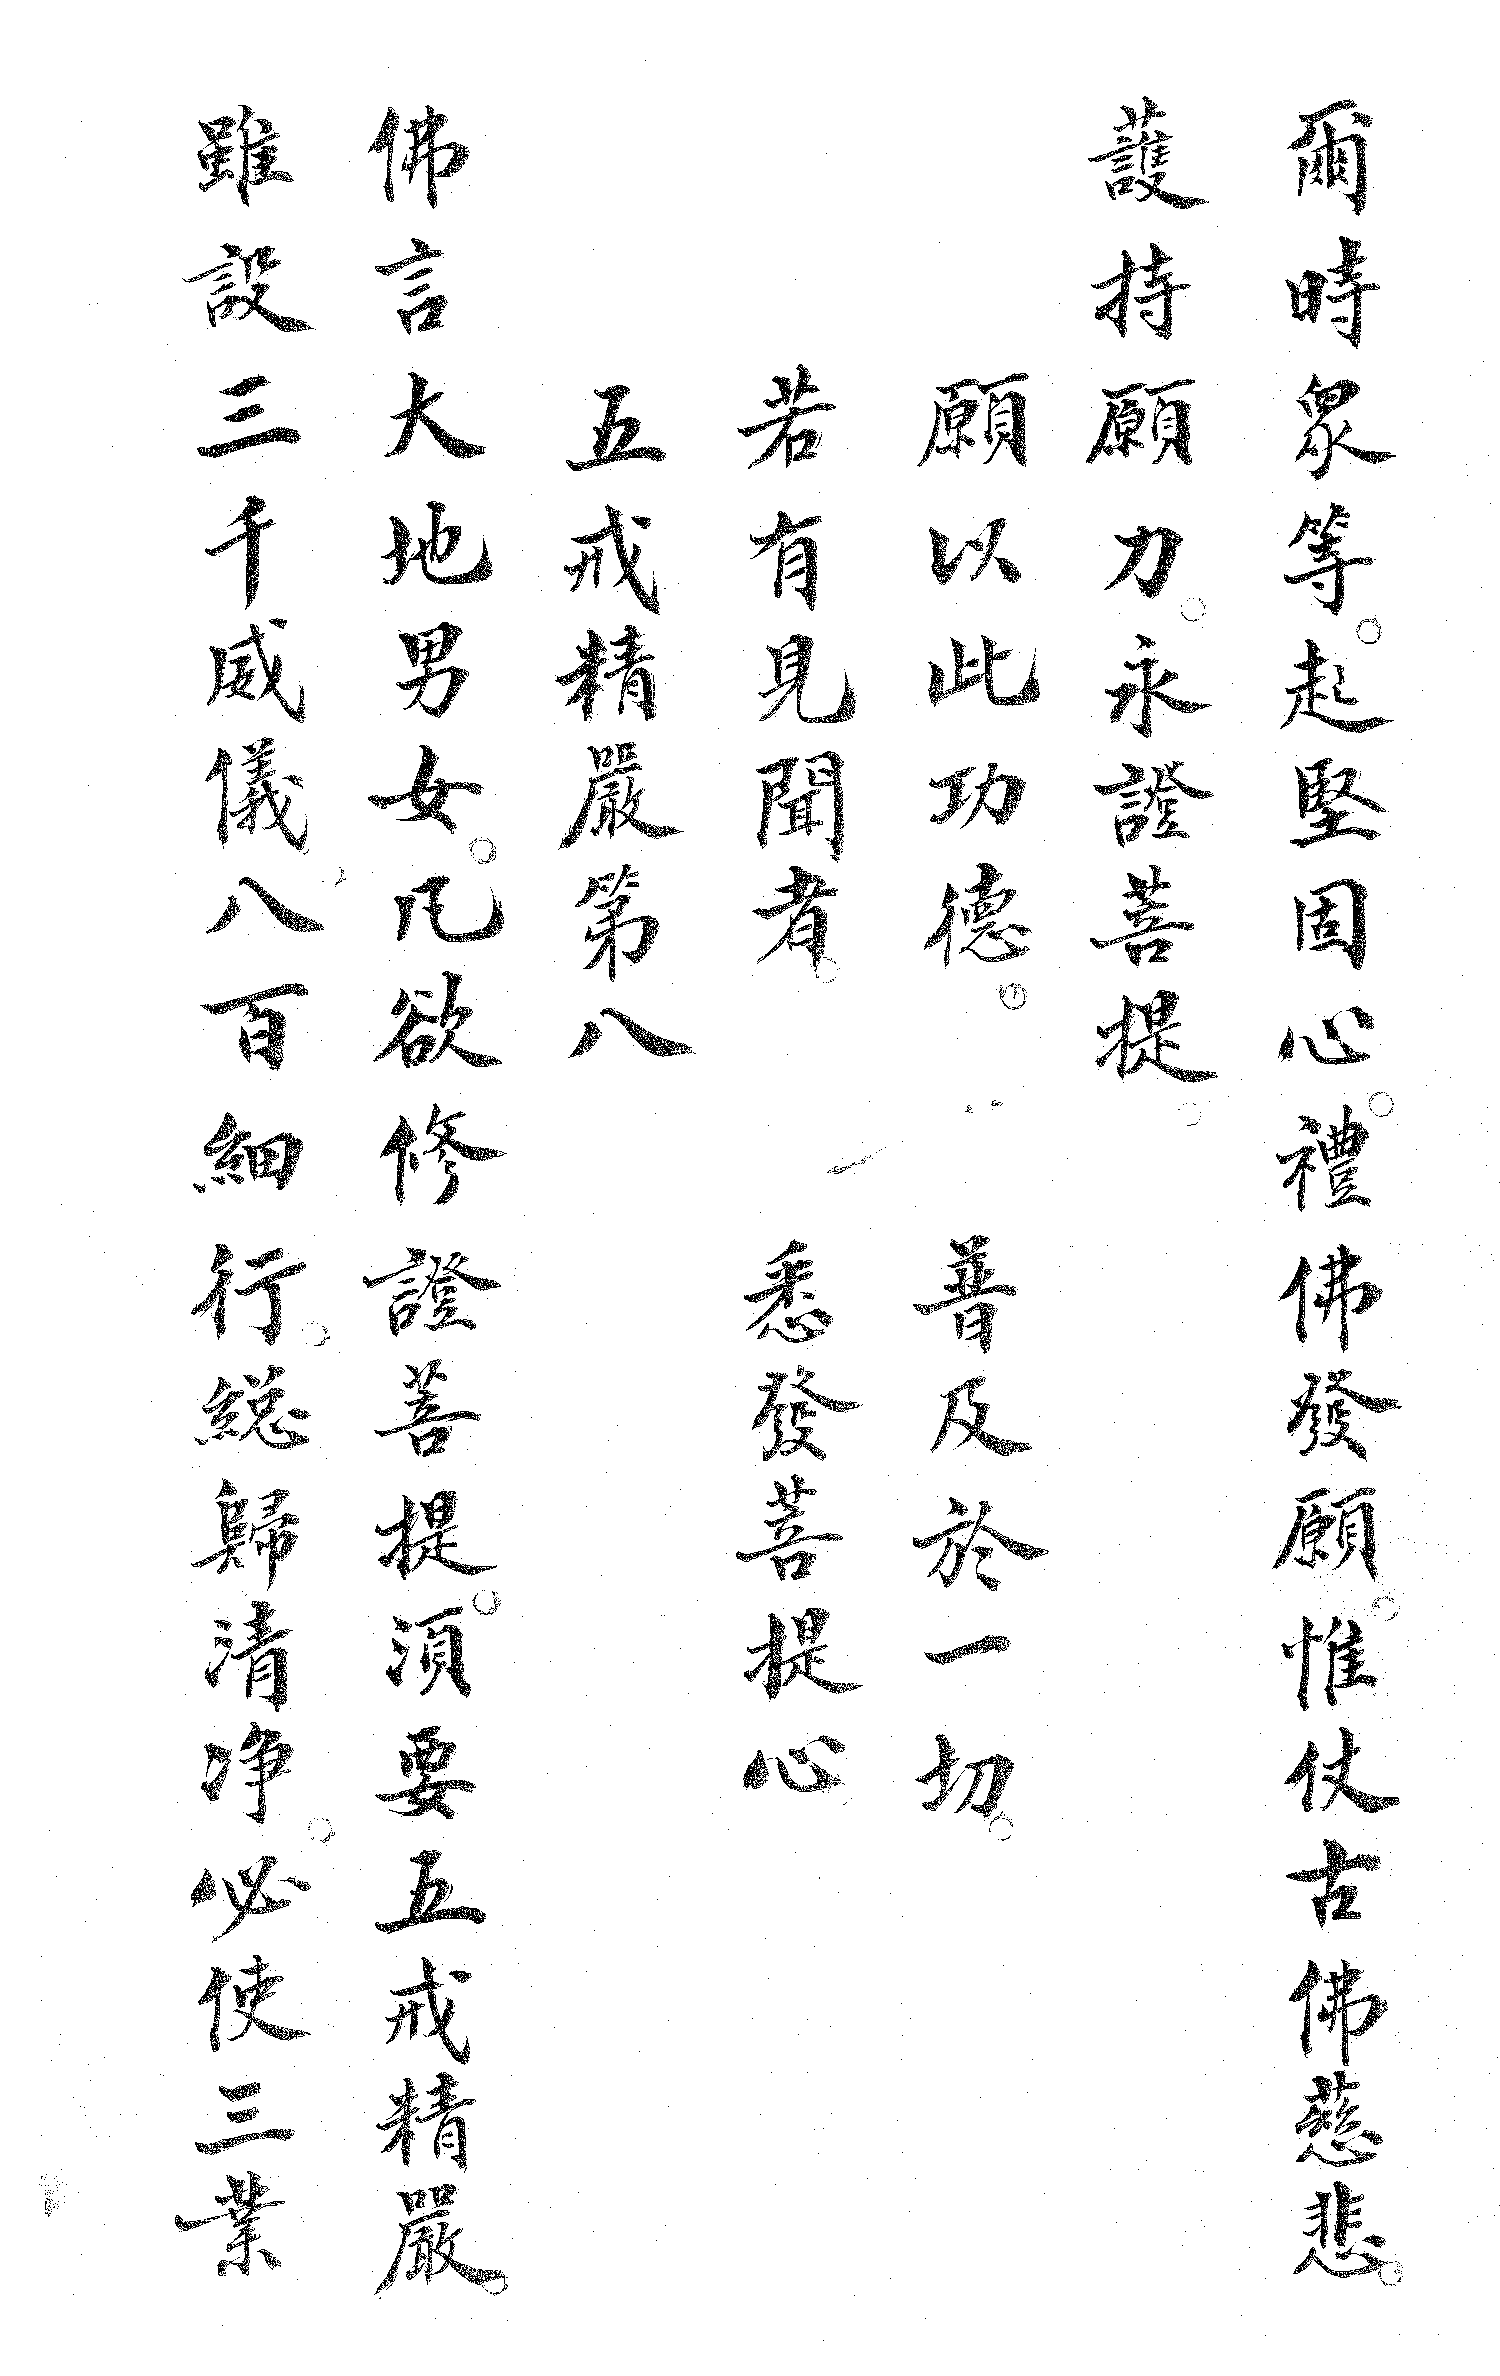 爾時眾等。起堅固心。禮佛發願。惟仗古佛慈悲。
護持願力。永證菩提。
願以此功德。　普及於一切。
若有見聞者。　悉發菩提心
五戒精嚴第八
佛言大地男女。凡欲修證菩提。須要五戒精嚴。
雖設三千威儀八百細行。総歸清淨。必使三業